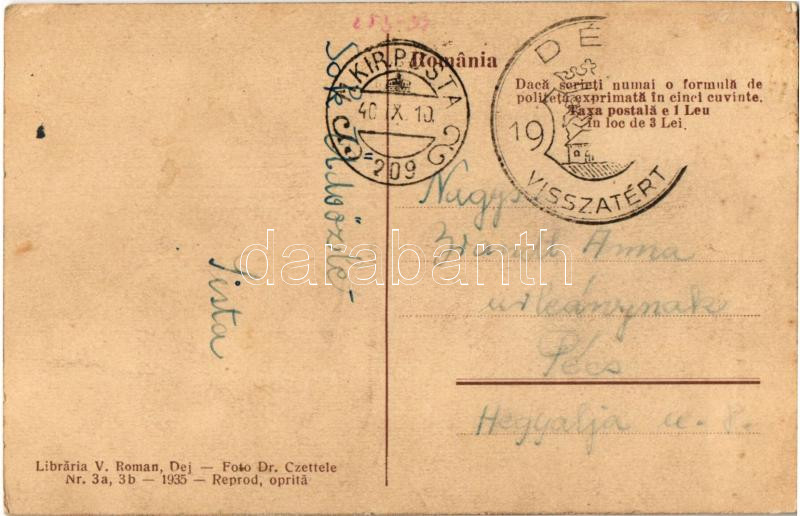 România
Dacă scrieți numai o formulă de
politeță exprimată în cinci cuvinte.
Taxa postală e 1 Leu
în loc de 3 Lei.
KIR.POSTA
40 IX. 10.
209
DÉ
19
VISSZATÉRT
Sok
Pista
Anna
úrleánynak
Pécs
Hegyalja u. 8.
darabanth
Librăria V. Roman, Dej — Foto Dr. Czettele
Nr. 3a, 3b — 1935 — Reprod, oprită